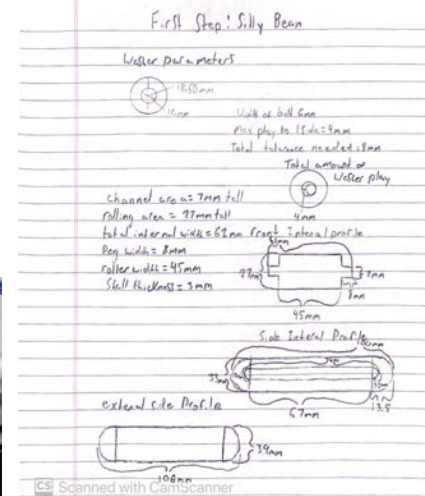 First Step: Silly Bean
Washer parameters
18.50mm
10mm
Width of ball 6mm
Max play to 1 side = 4mm
Total tolerance needed = 8mm
Total amount of
washer play
4mm
channel area = 7mm tall
rolling area = 27mm tall
total internal width = 61mm
Peg width = 8mm
roller width = 45mm
Shell thickness = 3mm
Front Internal profile
27mm
7mm
8mm
45mm
Side Internal Profile
100mm
33mm
67mm
13.5
external side Profile
39mm
106mm
CS Scanned with CamScanner